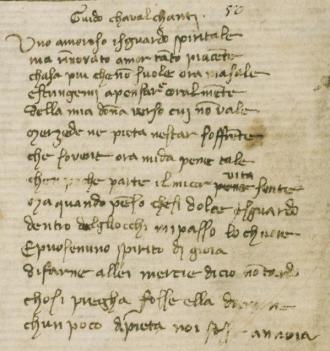 Guido chavalchanti . 50
Vno amoroso isguardo spiritale
ma rinovato amor tanto piacente
chasa piu che non suole ora masale
estringemi a pensar coralmente
della mia donna verso cui non vale
merzede ne pieta nestar soffrente
che sovente ora mi da pene tale
che poche parte il mi cor vita sente
Ma quando penso chesi dolce isguardo
dentro delgliocchi mi passo lo chuore
E puosenuno spirito di gioia
di farne allei mercie dicio non tardo
chosi pregha fosse ella
chun poco di pieta noi fosse annoia